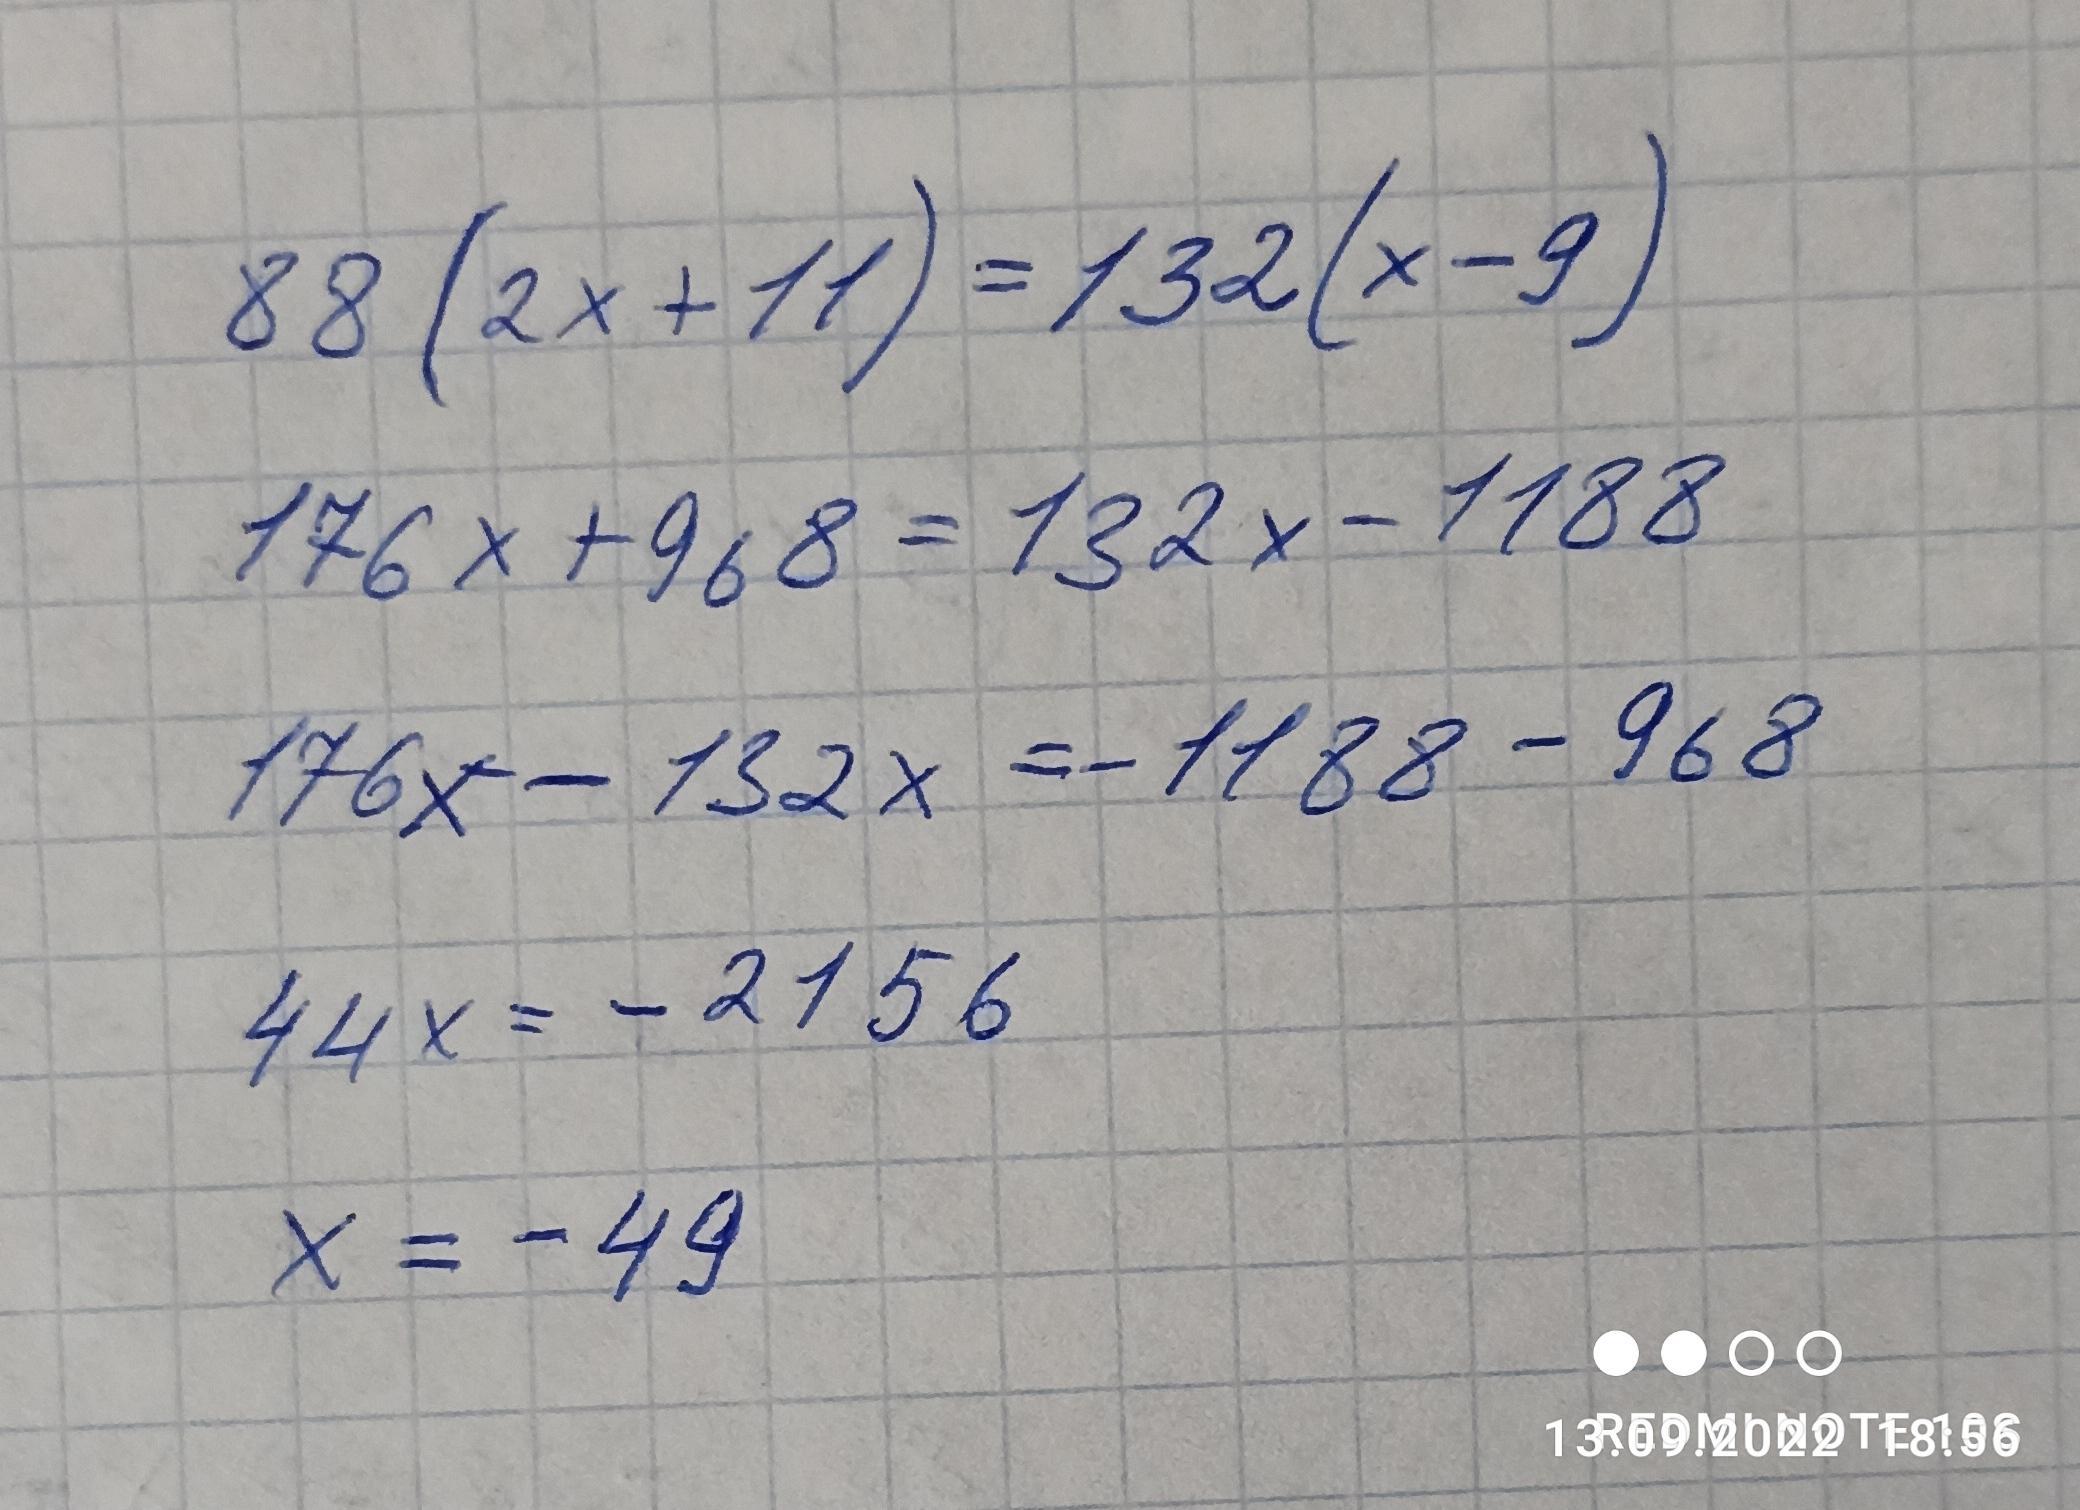 88(2x+11)=132(x-9)
176x+968=132x-1188
176x-132x=-1188-968
44x=-2156
x=-49
REDMI NOTE 10S
13.09.2022 18:56